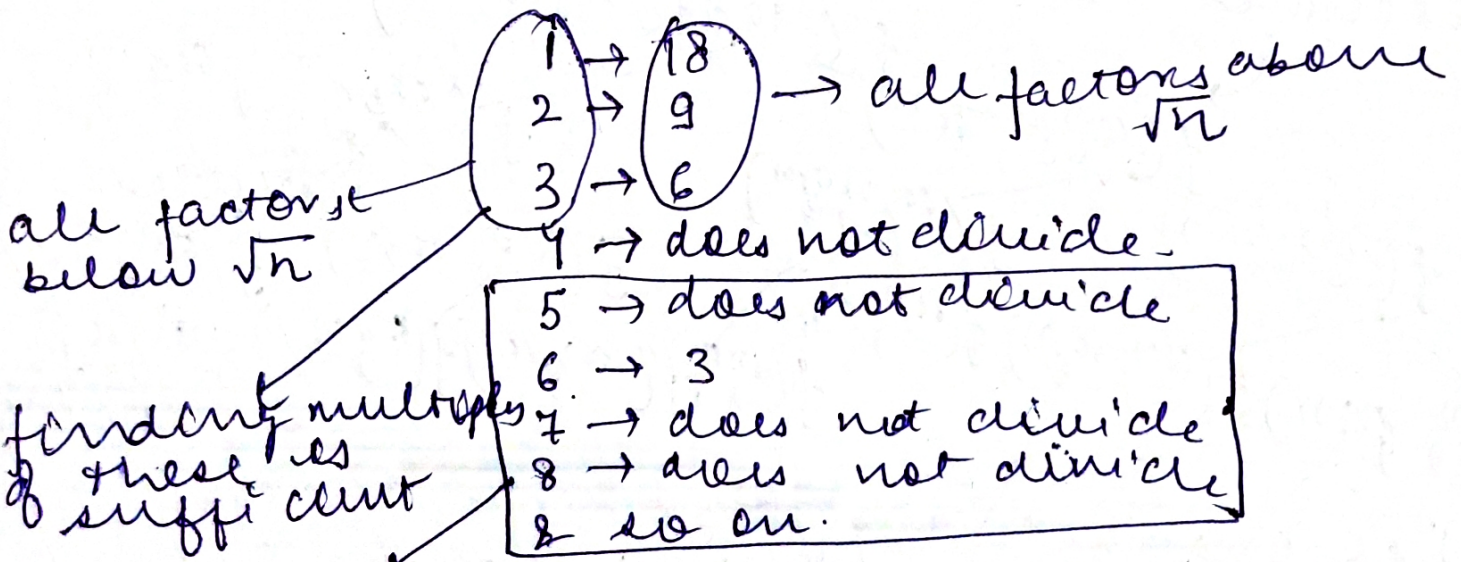 1 → 18
2 → 9 → all factors above √n
3 → 6
all factors
below √n
4 → does not divide.
5 → does not divide
6 → 3
7 → does not divide
8 → does not divide
& so on.
finding multiples
of these is
sufficient